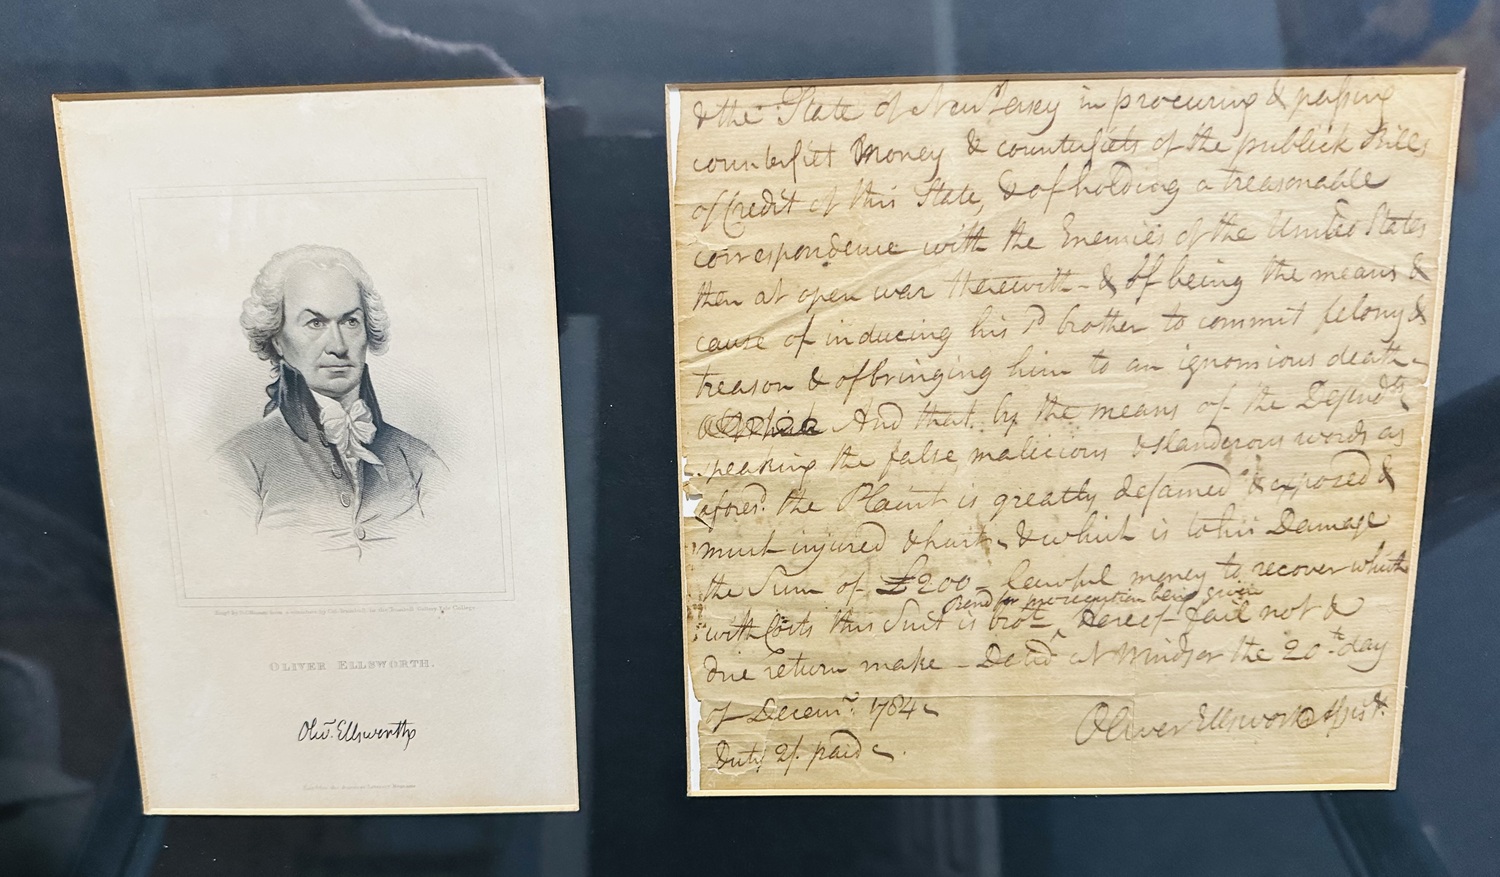 OLIVER ELLSWORTH.
Olivr. Ellsworth
& the State of New Jersey in procuring & passing
counterfiet Money & counterfiets of the publick Bills
of Credit of this State, & of holding a treasonable
correspondence with the Enemies of the United States
then at open war therewith - & of being the means &
cause of inducing his sd brother to commit felony &
treason & of bringing him to an ignomious death -
And that by the means of the Defendts
speaking the false, malicious & slanderous words as
aforesd. the Plaint is greatly defamed & exposed &
much injured & hurt - & which is to his Damage
the Sum of £200 - lawful money to recover which
Bond for prosecution being given
with Costs this Suit is brot. Hereof fail not &
due return make - Dated at Windsor the 20th day
of Decemr. 1784 -
Duty 2/. paid -
Oliver Ellsworth Assist.